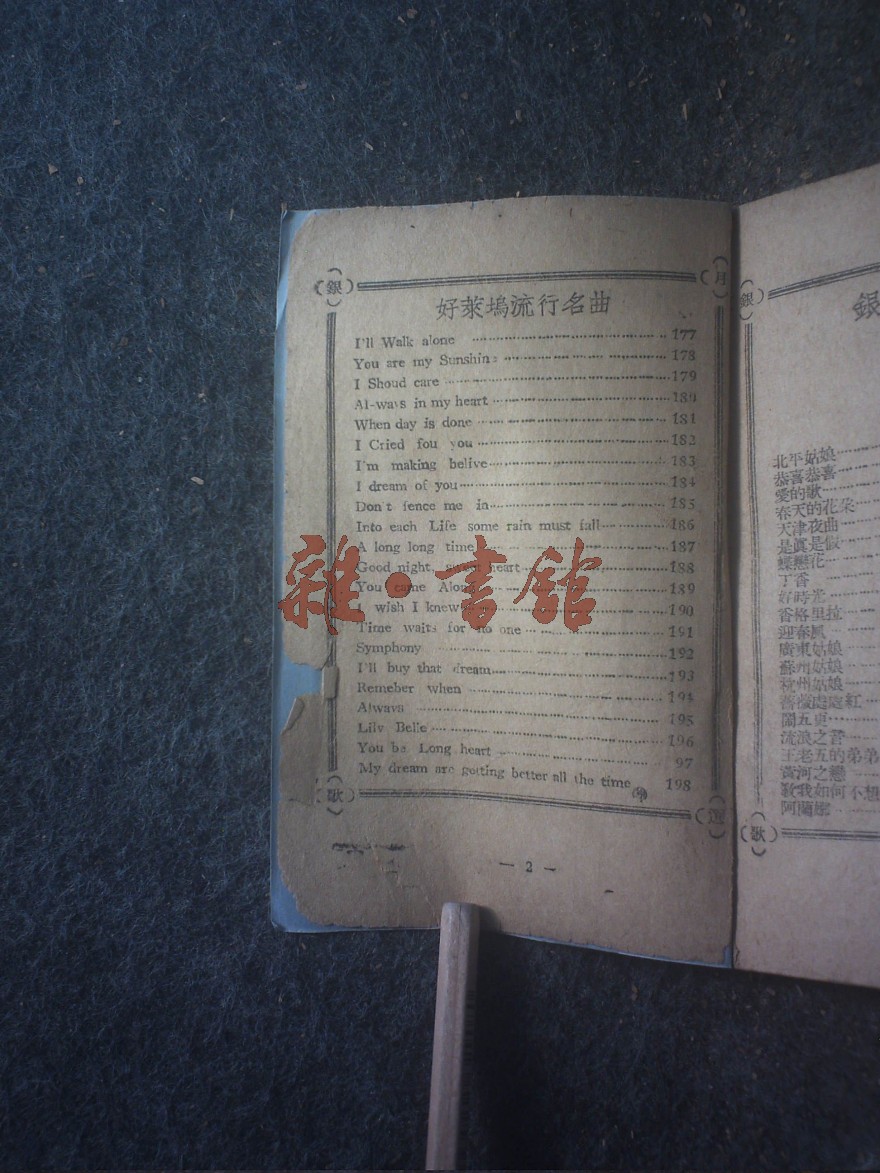 銀
月
好萊塢流行名曲
I'll Walk alone 177
You are my Sunshine 178
I Shoud care 179
Al-ways in my heart 180
When day is done 181
I Cried fou you 182
I'm making belive 183
I dream of you 184
Don't fence me in 185
Into each Life some rain must fall 186
A long long time 187
Good night, sweet heart 188
You came Along 189
I wish I knew 190
Time waits for no one 191
Symphony 192
I'll buy that dream 193
Remeber when 194
Always 195
Lily Belle 196
You be Long heart 97
My dream are getting better all the time 198
歌
選
— 2 —
雜·書館
銀
銀
北平姑娘
恭喜恭喜
愛的歌
春天的花朵
天津夜曲
是真是假
蝶戀花
丁香
好時光
香格里拉
迎春風
廣東姑娘
蘇州姑娘
杭州姑娘
薔薇處處紅
鬧五更
流浪之音
王老五的弟弟
黃河之戀
教我如何不想
阿蘭娜
歌